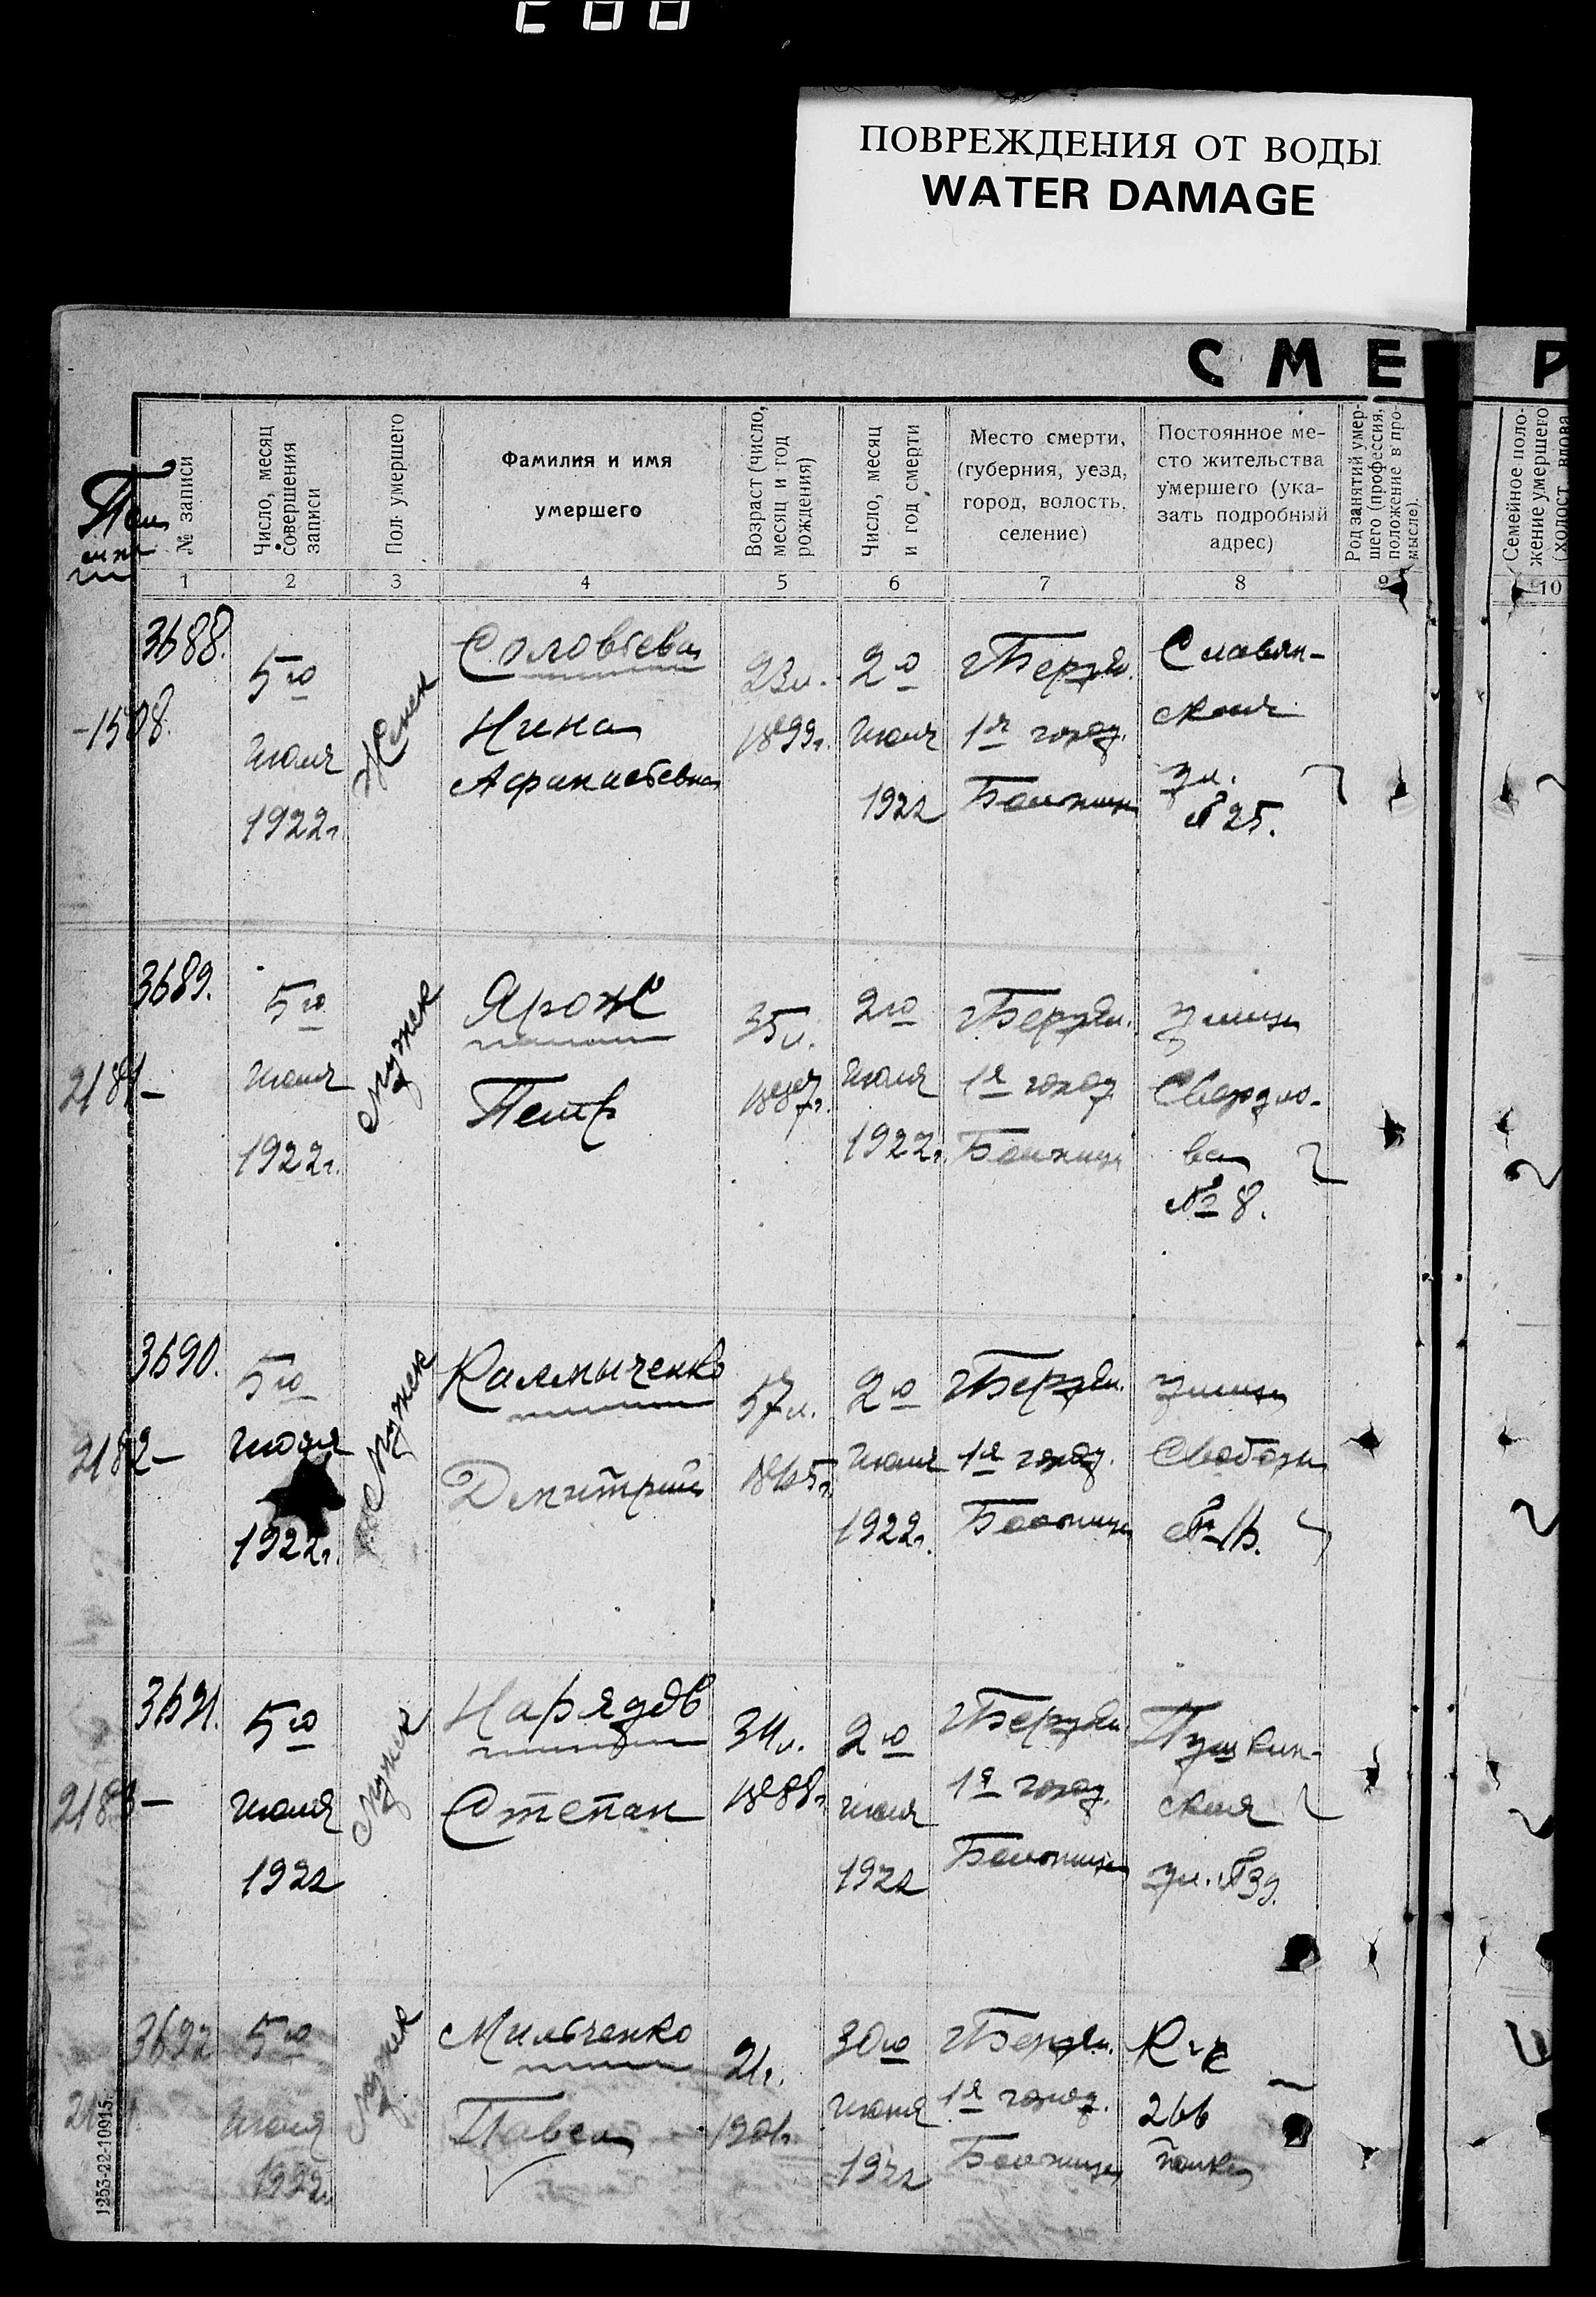 ПОВРЕЖДЕНИЯ ОТ ВОДЫ
WATER DAMAGE
СМЕ Р
№ записи
Число, месяц совершения записи
Пол умершего
Фамилия и имя
умершего
Возраст (число, месяц и год рождения)
Число, месяц и год смерти
Место смерти,
(губерния, уезд,
город, волость,
селение)
Постоянное ме-
сто жительства
умершего (ука-
зать подробный
адрес)
Род занятий умер-
шего (профессия,
положение в про-
мысле).
Семейное поло-
жение умершего
(холост, вдова
1 2 3 4 5 6 7 8 9 10
3688.
-1508.
5го
июля
1922г.
Женск
Соловьева
Нина
Афанасьевна
23л.
1899г.
2го
июля
1922
г Бердян.
1я город.
Больница
Славян-
ская
ул.
№ 25.
3689.
2181-
5го
июля
1922г.
Мужск
Ярож
Петр
35л.
1887г.
2го
июля
1922г.
г Бердян.
1я город
Больница
улица
Свердло-
ва
№ 8.
3690.
2182-
5го
июля
1922г.
Мужск
Калмыченко
Дмитрий
57л.
1865г.
2го
июля
1922г.
г Бердян.
1я город.
Больница
улица
Свободы
3691.
2183-
5го
июля
1922
Мужск
Нарядов
Степан
34л.
1888г.
2го
июля
1922
г Бердян.
1я город.
Больница
Пушкин-
ская
ул. № 39.
3692
5го
июля
1922г.
Мужск
Мильченко
Павел
21г.
1901г.
30го
июня
1922
г Бердян.
1я город.
Больница
266
полка
1253-22-10915.